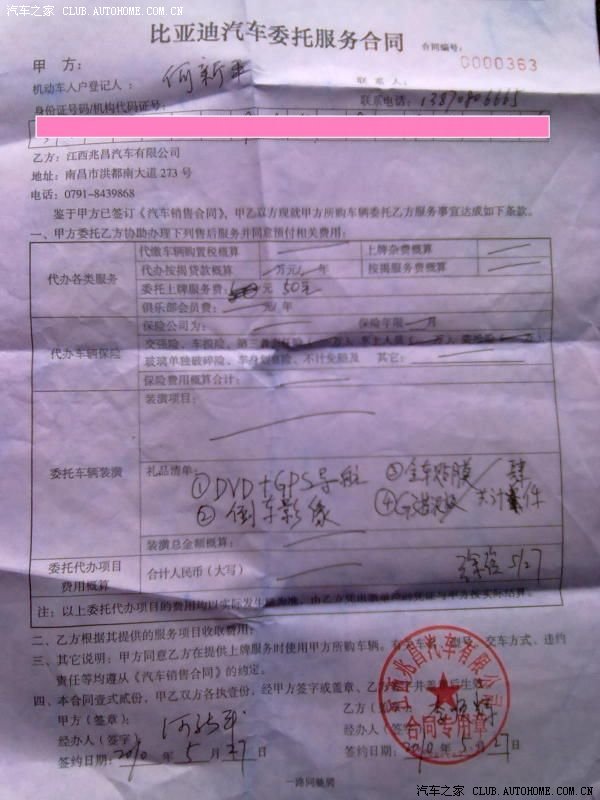 汽车之家 CLUB.AUTOHOME.COM.CN
比亚迪汽车委托服务合同
合同编号：
0000363
甲 方：
机动车入户登记人： 何新平
联 系 人：
身份证号码/机构代码证号：
联系电话：
乙方：江西兆昌汽车有限公司
地址：南昌市洪都南大道273号
电话：0791-8439868
鉴于甲方已签订《汽车销售合同》，甲乙双方现就甲方所购车辆委托乙方服务事宜达成如下条款。
一、甲方委托乙方协助办理下列售后服务并同意预付相关费用：
代办各类服务
代缴车辆购置税概算 上牌杂费概算
代办按揭贷款概算 万元/ 年 按揭服务费概算
委托上牌服务费： 元 50元
俱乐部会员费： 元/年
代办车辆保险
保险公司为： 保险年限 月
交强险、车损险、第三者
玻璃单独破碎险、车身划痕险、不计免赔及 其它：
保险费用概算合计：
委托车辆装潢
装潢项目：
礼品清单：
①DVD+GPS导航 ③全车贴膜 肆
②倒车影像 共计 件
装潢总金额概算：
委托代办项目
费用概算
合计人民币（大写） 5/27
注：以上委托代办项目的费用均以实际发生额为准，由乙方凭出据单位的凭证与甲方按实际结算。
二、乙方根据其提供的服务项目收取费用；
三、其它说明：甲方同意乙方在提供上牌服务时使用甲方所购车辆。 交车方式、违约
责任等均遵从《汽车销售合同》的约定。
四、本合同壹式贰份，甲乙双方各执壹份，经甲方签字或盖章、乙方 并盖 后生效。
甲方（签章）： 乙方（签章）：
经办人（签字）： 经办人（签字）
签约日期：2010 年 5 月 27 日 签约日期：2010 年 5 月 27 日
兆昌汽车有限公司
合同专用章
一路同驰骋
汽车之家 CLUB.AUTOHOME.COM.CN